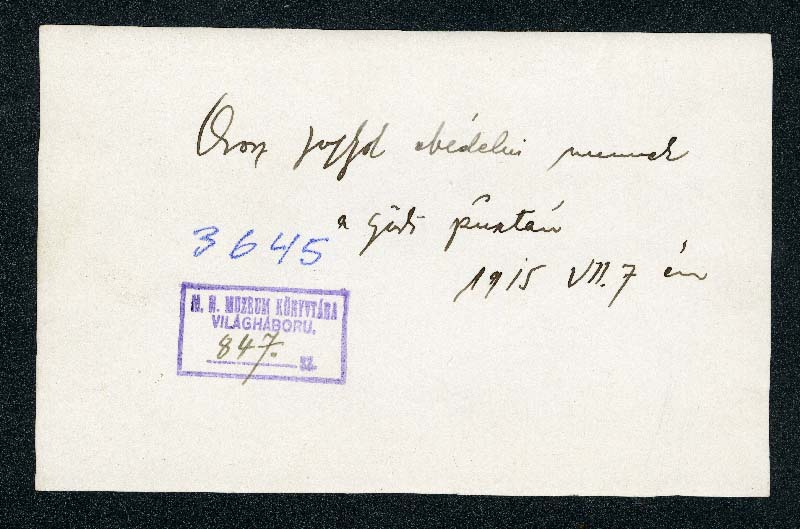 Orosz foglyok ebédelni mennek
a gödi pusztán
1915 VII. 7 én
3645
M. N. MUZEUM KÖNYVTÁRA
VILÁGHÁBORU.
847. sz.